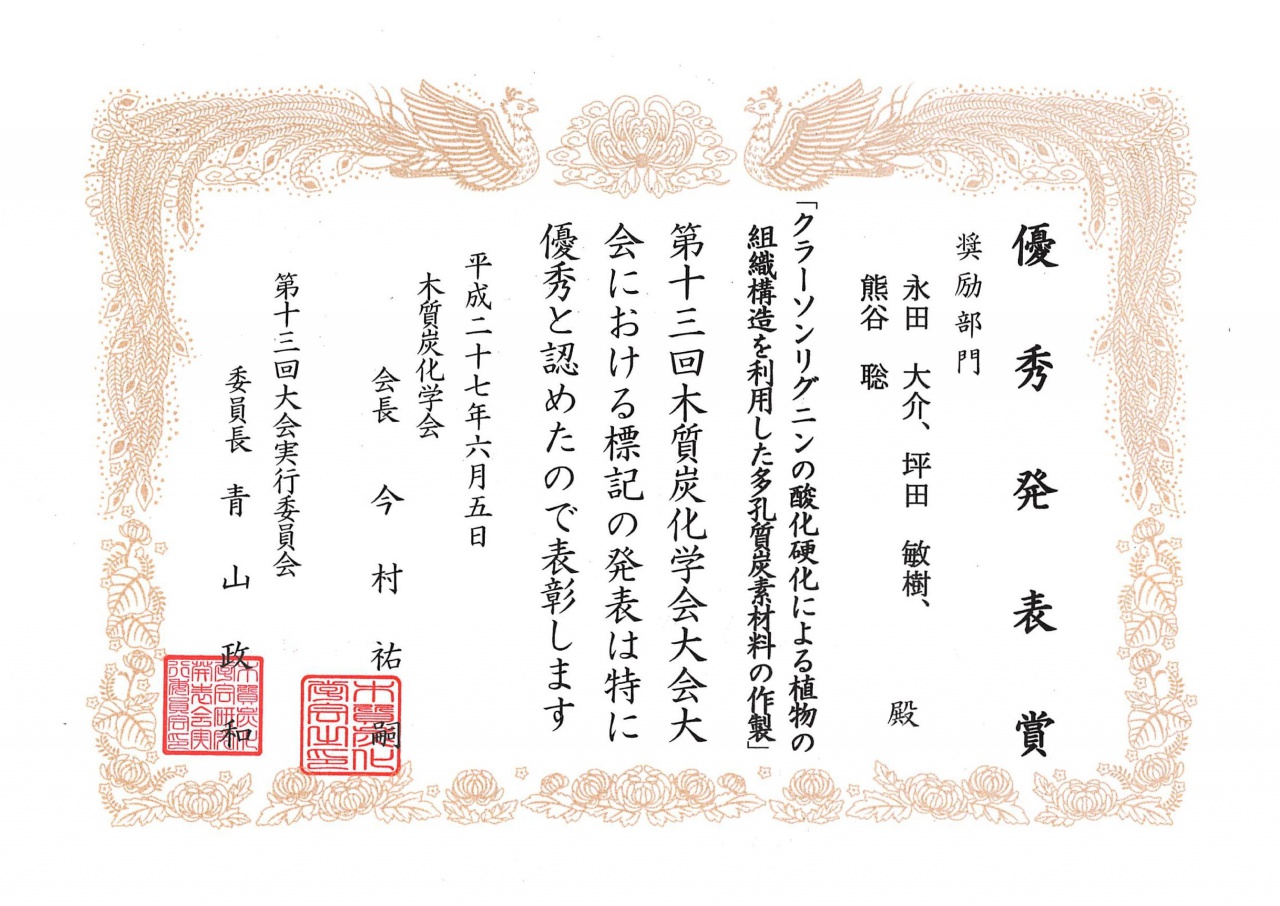 優秀発表賞
奨励部門
永田 大介、坪田 敏樹、
熊谷 聡
殿
「クラーソンリグニンの酸化硬化による植物の
組織構造を利用した多孔質炭素材料の作製」
第十三回木質炭化学会大会大
会における標記の発表は特に
優秀と認めたので表彰します
平成二十七年六月五日
木質炭化学会
会長 今村祐嗣
第十三回大会実行委員会
委員長 青山政和